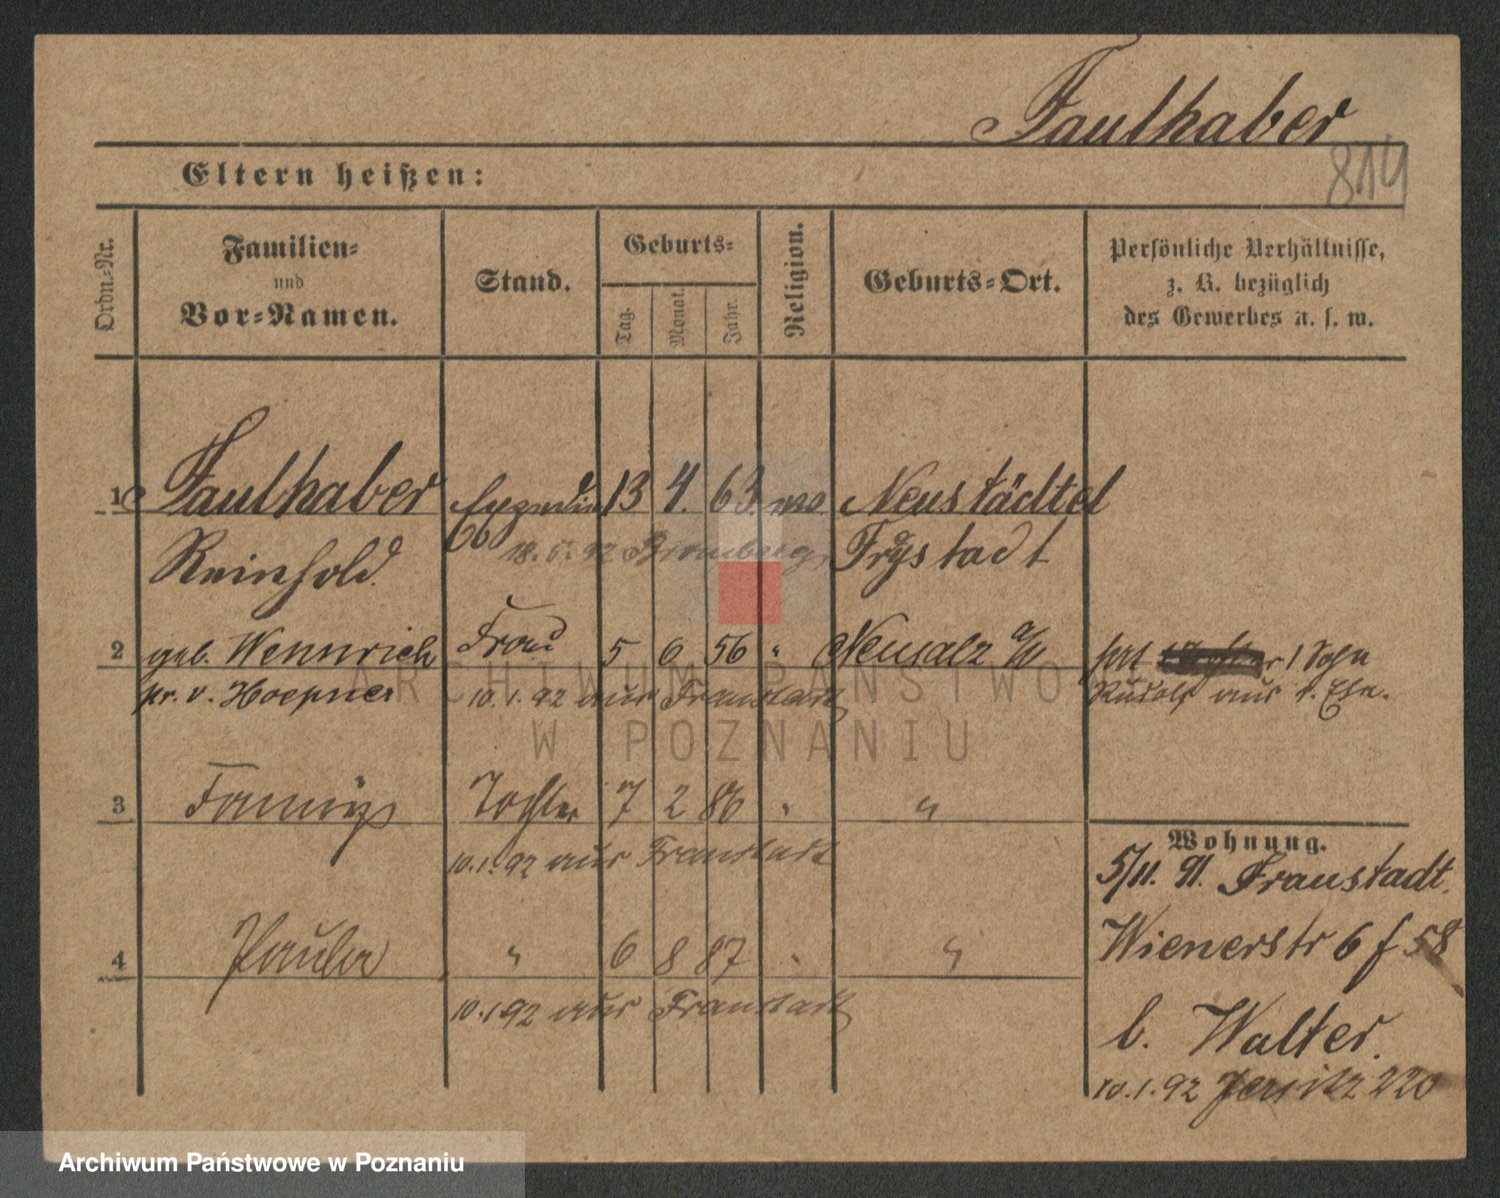 Faulhaber
814
Eltern heißen:
Ordn.-Nr.
Familien-
und
Vor-Namen.
Stand.
Geburts-
Tag.
Monat.
Jahr.
Religion.
Geburts-Ort.
Persönliche Verhältnisse,
z. B. bezüglich
des Gewerbes u. s. w.
1 Faulhaber 13 4. 63 Neustädtel
Reinhold 18. 5. 92 Bromberg Frystadt
2 geb. Wennrich Frau 5 6 56 " Neusalz a/O hat 1 Sohn
pr. v. Hoepner 10.1.92 aus Fraustadt Rudolf aus 1. Ehe.
3 Tochter 7 2 86 " "
10.1.92 aus Fraustadt
4 Paula " 6 8 87 " "
10.1.92 aus Fraustadt
Wohnung.
5/11. 91. Fraustadt.
Wienerstr 6 f 58
b. Walter.
10.1.92 Jersitz 220
ARCHIWUM PAŃSTWOWE
W POZNANIU
Archiwum Państwowe w Poznaniu